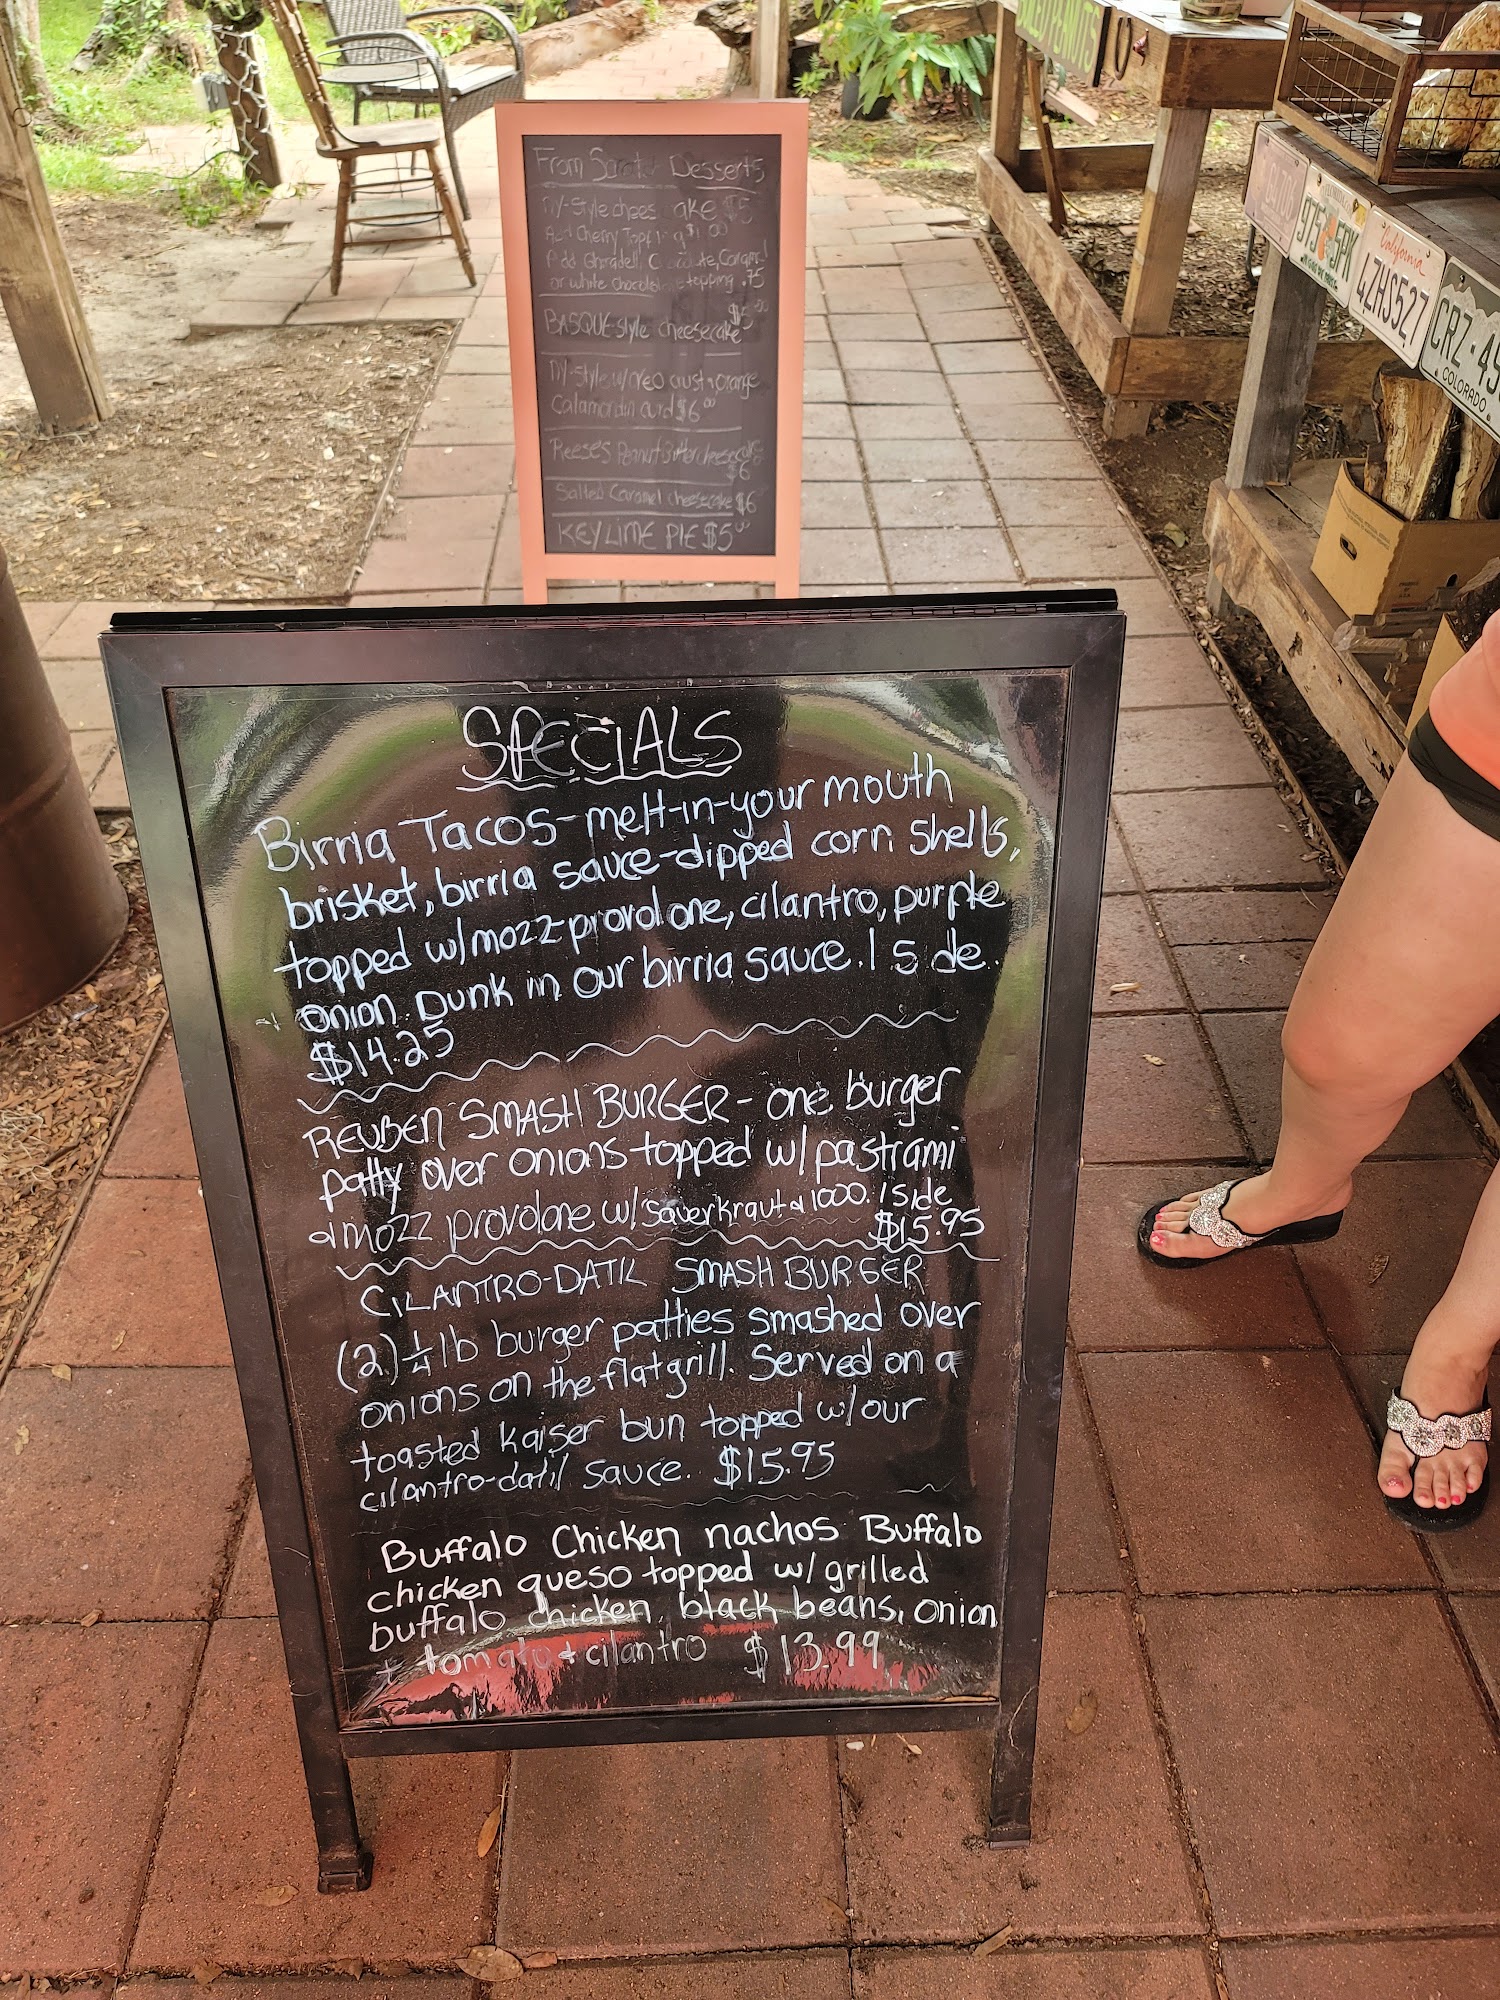 BOILED PEANUTS
From Desserts
NY-style cheesecake $5
Add Cherry Topping $1.00
Add Ghiradelli Chocolate, Caramel
or white chocolate topping .75
BASQUE style cheesecake $5.00
NY-style w/oreo crust & orange
Calamondin curd $6.00
Reese's Peanut Butter cheesecake
$6
Salted Caramel cheesecake $6
KEY LIME PIE $5.00
975 5PK
California
4ZHS527
CRZ-49
COLORADO
SPECIALS
Birria Tacos-melt-in-your mouth
brisket, birria sauce-dipped corn shells,
topped w/mozz-provolone, cilantro, purple
onion. Dunk in our birria sauce. 1 side.
$14.25
REUBEN SMASH BURGER - one burger
patty over onions topped w/pastrami
& mozz provolone w/sauerkraut & 1000. 1 side
$15.95
CILANTRO-DATIL SMASH BURGER
(2) 1/4 lb burger patties smashed over
onions on the flat grill. Served on a
toasted kaiser bun topped w/our
cilantro-datil sauce. $15.95
Buffalo Chicken nachos Buffalo
chicken queso topped w/ grilled
buffalo chicken, black beans, onion
+ tomato + cilantro $13.99